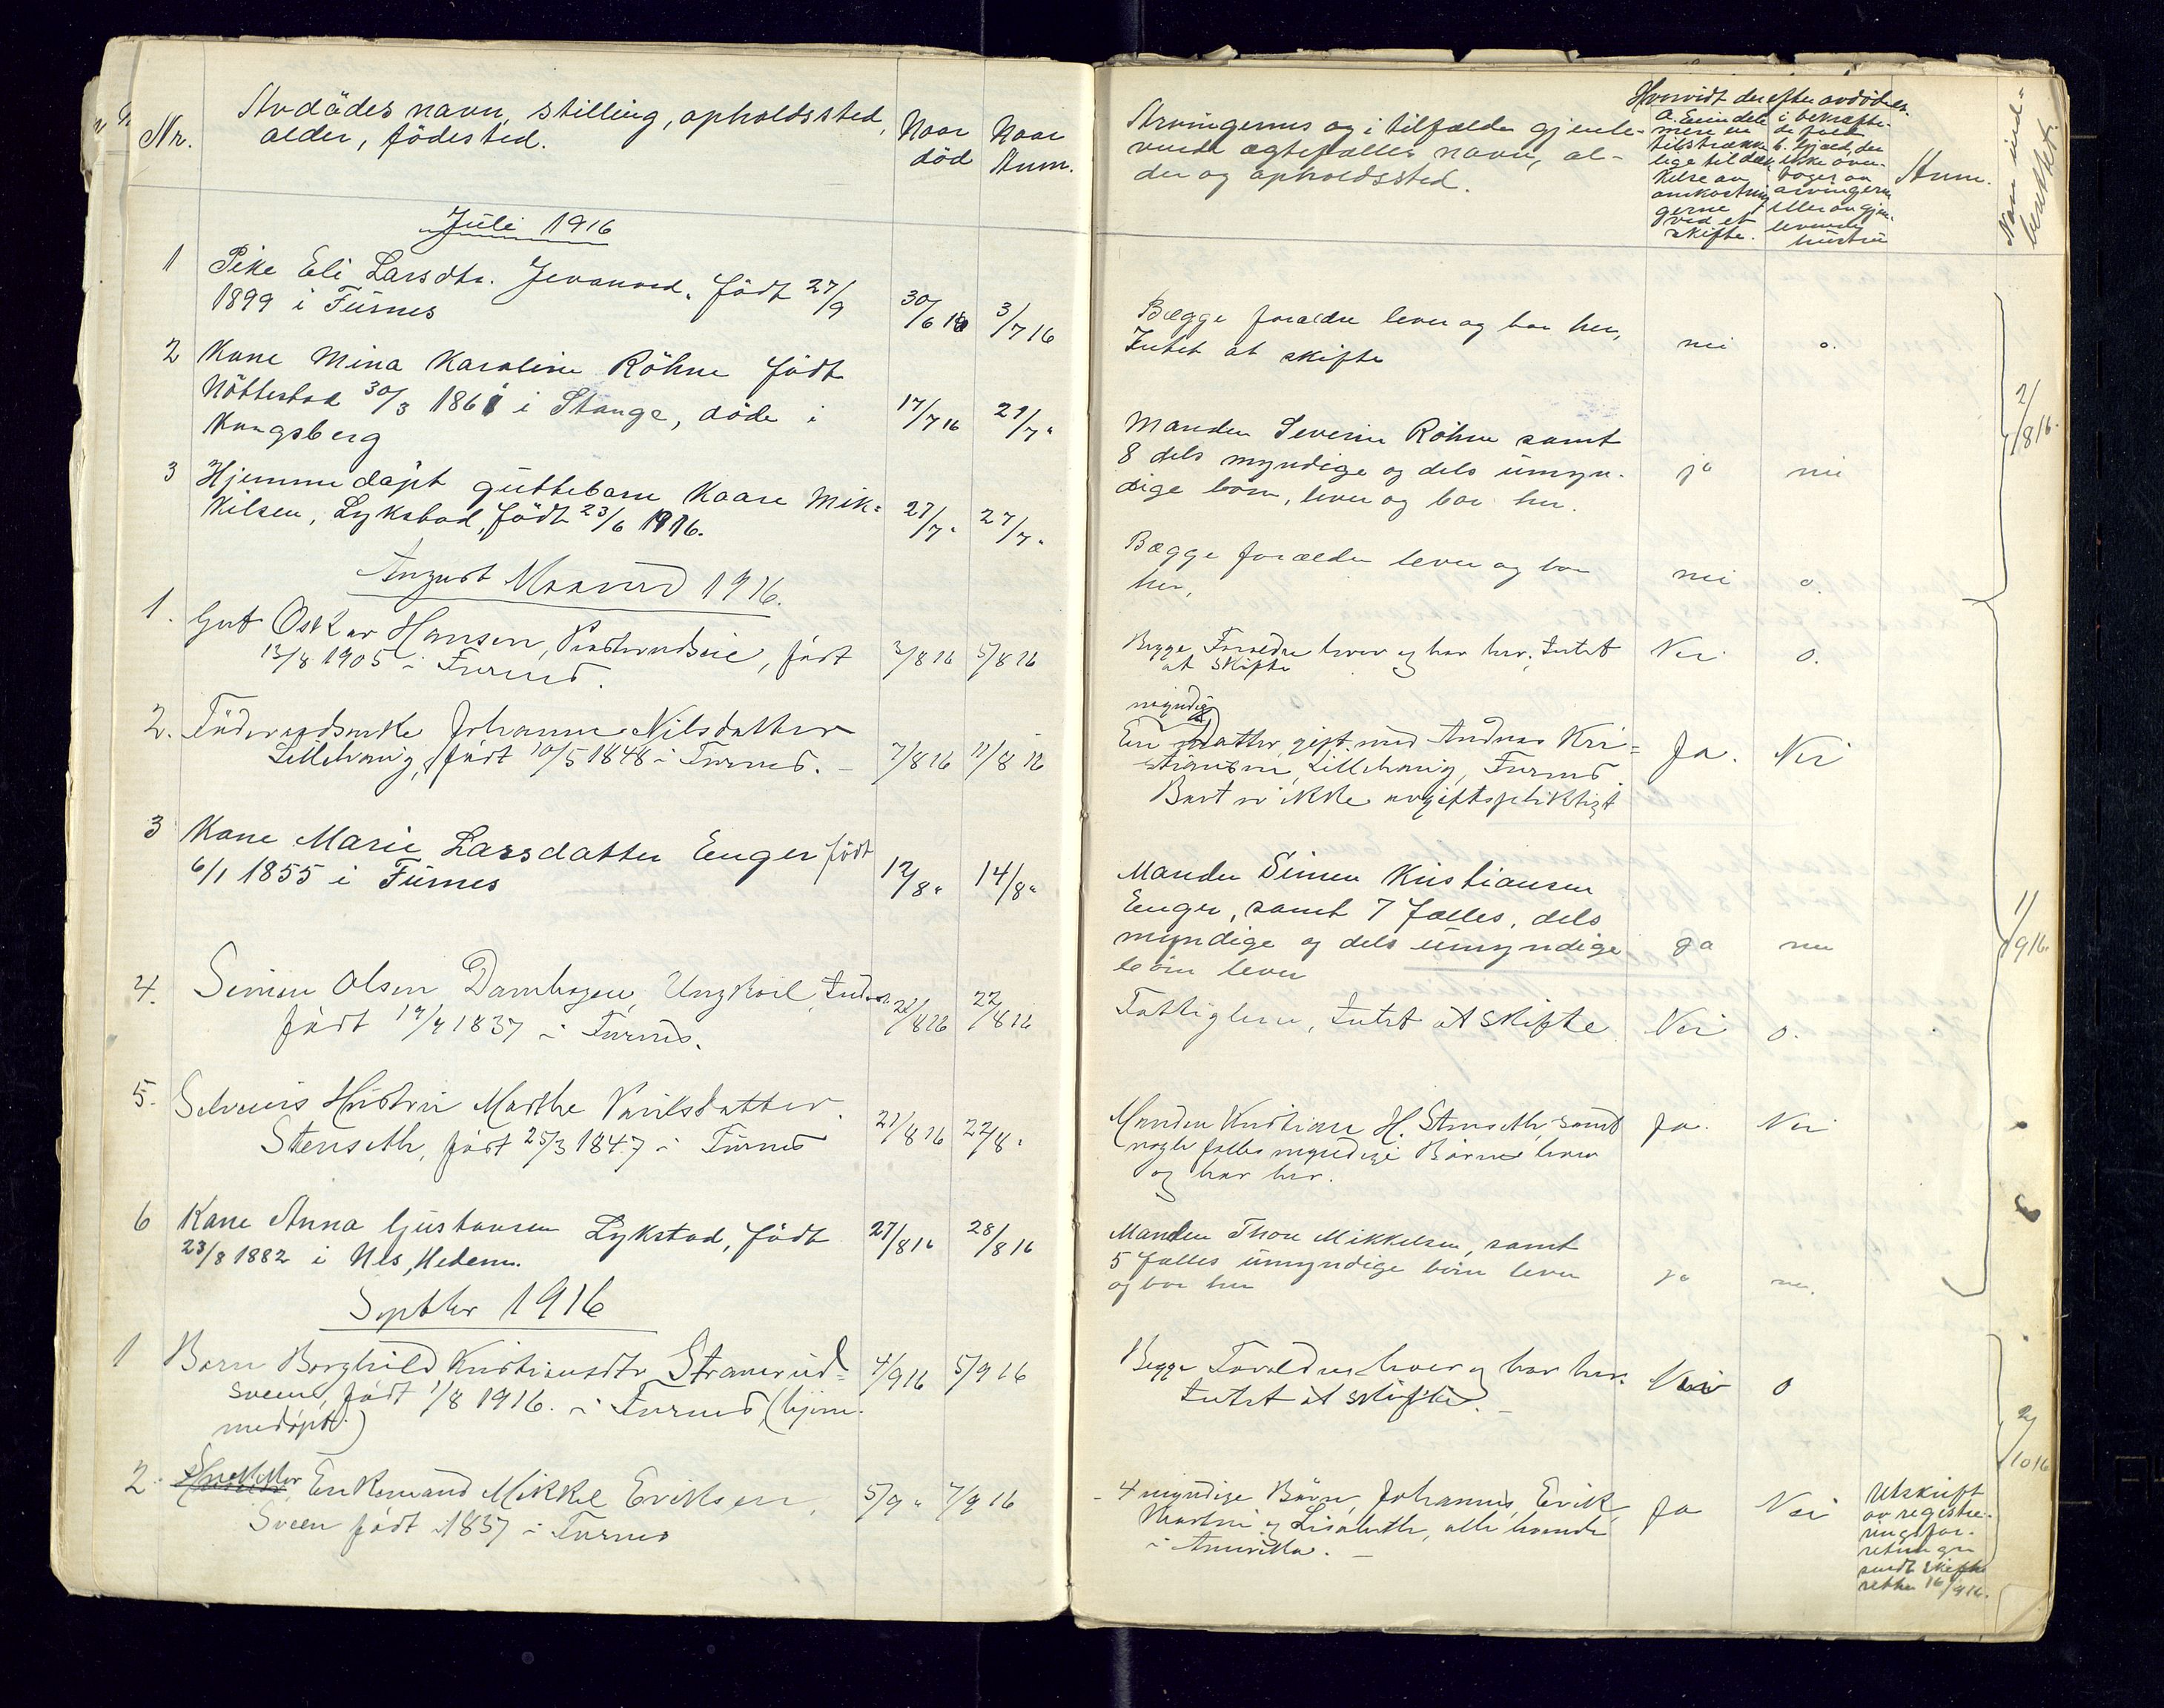 Nr.
Avdödes navn, stilling, opholdssted,
alder, födested.
Naar
död
Naar
Anm.
Juli 1916
1 Pike Eli Larsdtr. Jevanord, födt 27/9
1899 i Furnes
30/6 16 3/7 16
2 Kone Mina Karoline Röhne födt
Nöttestad 30/3 1861 i Stange, döde i
Kongsberg
17/7 16 21/7 "
3 Hjemmedöpt guttebarn Kaare Mik-
kilsen, Lykstad, födt 23/6 1916.
27/7 " 27/7 "
August Maaned 1916.
1. Gut Oskar Hansen, födt
13/8 1905 i Furnes.
3/8 16 5/8 16
2. Föderaadsenke Johanne Nilsdatter
Lillehamig, födt 10/5 1848 i Furnes.
7/8 16 11/8 16
3 Kone Marie Larsdatter Enger födt
6/1 1855 i Furnes
12/8 " 14/8 "
4. Simen Olsen Damhagen, Ungkarl,
födt 19/4 1837 i Furnes.
22/8 16
5. Selveiers Hustru Marthe
Stenseth, födt 25/3 1847 i Furnes
21/8 16 22/8 "
6 Kone Anna Gustavsen Lykstad, födt
23/8 1882 i Nes, Hedem.
27/8 16 28/8 16
Septbr 1916
1 Barn Borghild Kristiansdtr Stramrud-
sveen, födt 1/8 1916. i Furnes (hjem-
medöpt)
4/9 16 5/9 16
2. Enkemand Mikkel Eriksen,
Sveen födt 1837 i Furnes
5/9 " 7/9 16
Arvingernes og i tilfælde gjenle-
vende ægtefælles navn, al-
der og opholdssted.
Hvorvidt der efter avdöde er
A. Eiendele
mere en
tilstrække
lige til dæk
kelse av
omkostnin
gerne
ved et
skifte.
i bekræfte-
de fald
b. Gjæld, der
ikke over-
tages av
arvingerne
eller av gjen-
levende
hustru
Anm.
Naar ind-
berettet.
Begge forældre lever og bor her,
Intet at skifte
nei o.
Manden Severin Röhne samt
8 dels myndige og dels umyn-
dige barn, lever og bor her.
ja nei
2/8 16.
Begge forældre lever og bor
her,
nei o.
Begge Forældre lever og bor her, Intet
at skifte
Nei o.
myndig
En Datter gift med Andreas Kri-
stiansen, Lillehamig, Furnes.
Boet er ikke avgiftspliktigt
Ja. Nei
Manden Simen Kristiansen
Enger, samt 7 fælles, dels
myndige og dels umyndige
börn lever
ja nei
11/9 16.
Fattiglem, Intet at skifte
Nei o.
Manden Kristian H. Stenseth, samt
nogle fælles myndige Börn lever
og bor her.
Ja. Nei
Manden Thore Mikkelsen, samt
5 fælles umyndige börn lever
og bor her
ja nei.
Begge Forældre lever og bor her.
Intet at skifte.
Nei o
2/10 16
4 myndige Börn, Johannes, Erik,
Martin og Lisabeth, alle boende
i Amerika.
Ja Nei
Utskrift
av registre-
ringsfor-
retningen
sendt skifte
retten 16/9 16.